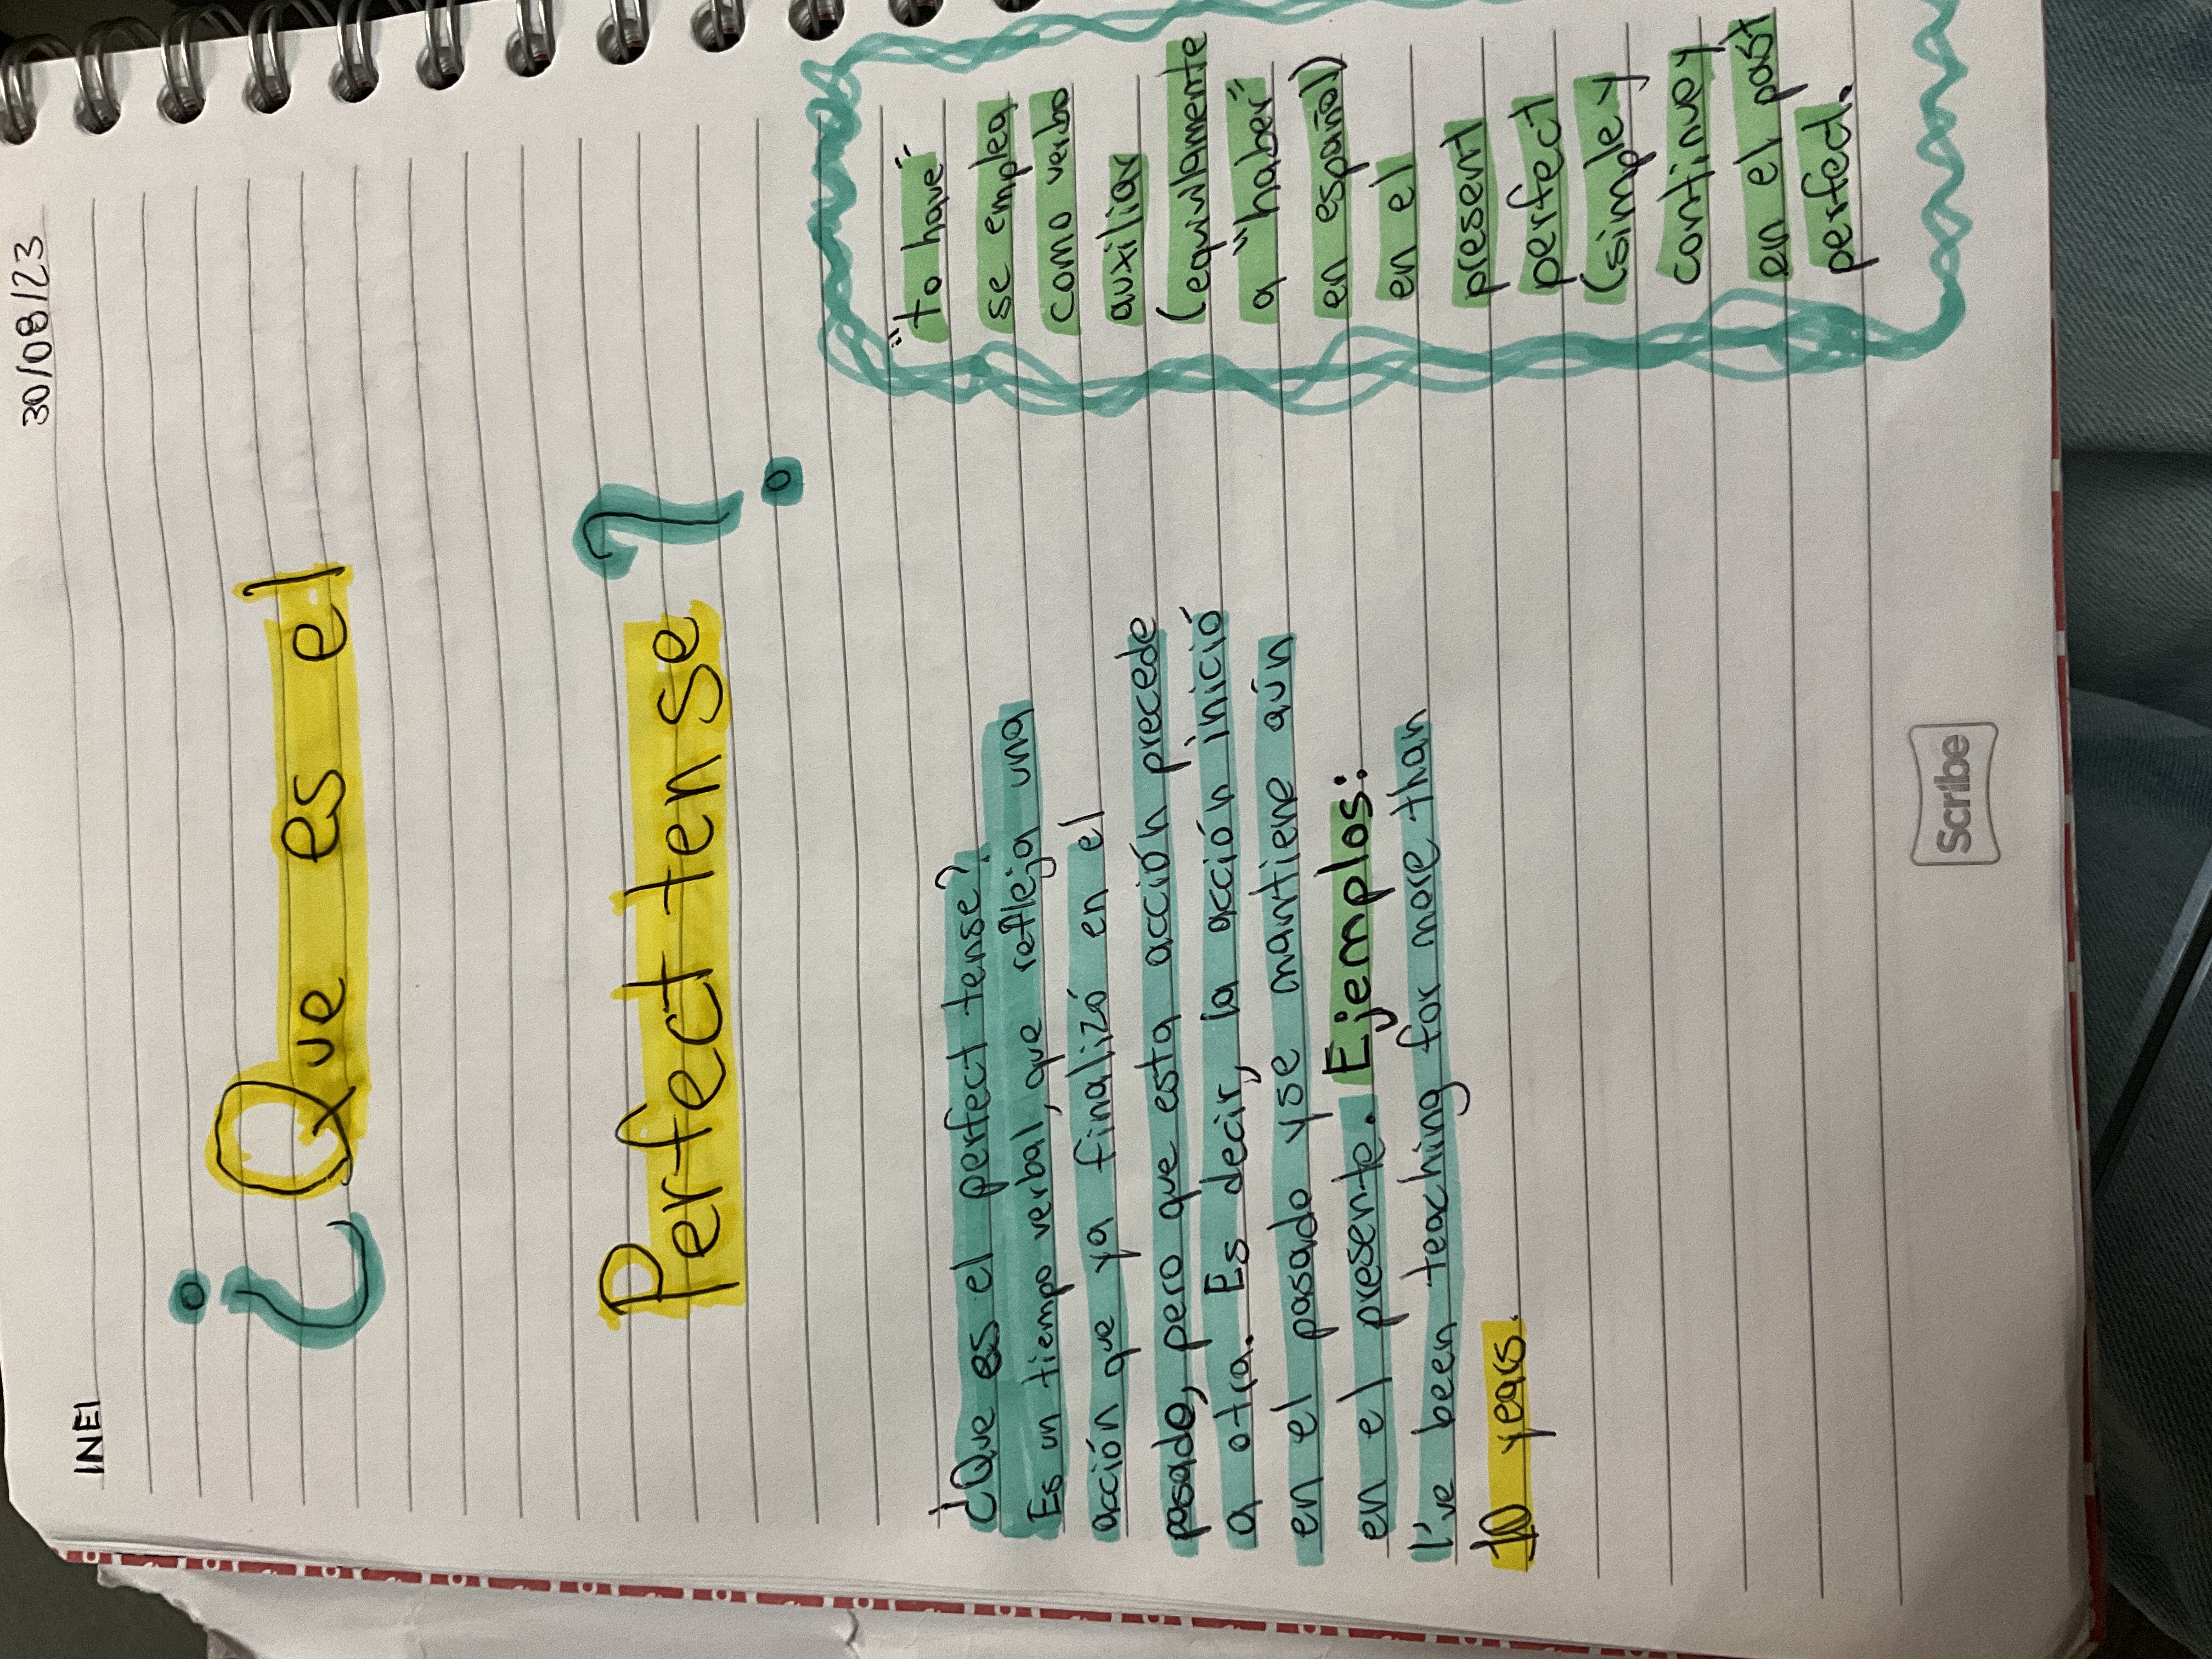 INEI
30/08/23
¿Que es el
Perfect tense?
¿Que es el perfect tense?
Es un tiempo verbal, que refleja una
acción que ya finalizó en el
pasado, pero que esta acción precede
a otra. Es decir, la acción inició
en el pasado y se mantiene aún
en el presente. Ejemplos:
I've been teaching for more than
10 years.
"to have"
se emplea
como verbo
auxiliar
(equivalamente
a "haber"
en español)
en el
present
perfect
(simple y
continue y
en el past
perfect.
Scribe